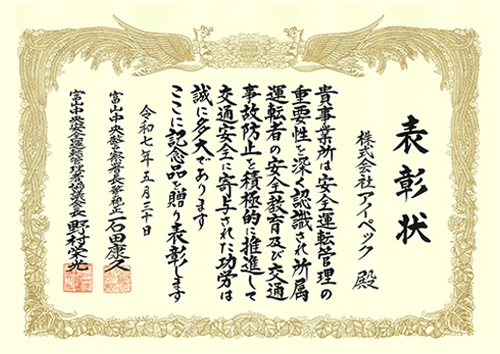 表彰状
株式会社アイペック 殿
貴事業所は安全運転管理の
重要性を深く認識され所属
運転者の安全教育及び交通
事故防止を積極的に推進して
交通安全に寄与された功労は
誠に多大であります
ここに記念品を贈り表彰します
令和七年五月二十日
富山中央警察署長警視正 石田康久
富山中央安全運転管理者協会長 野村栄光